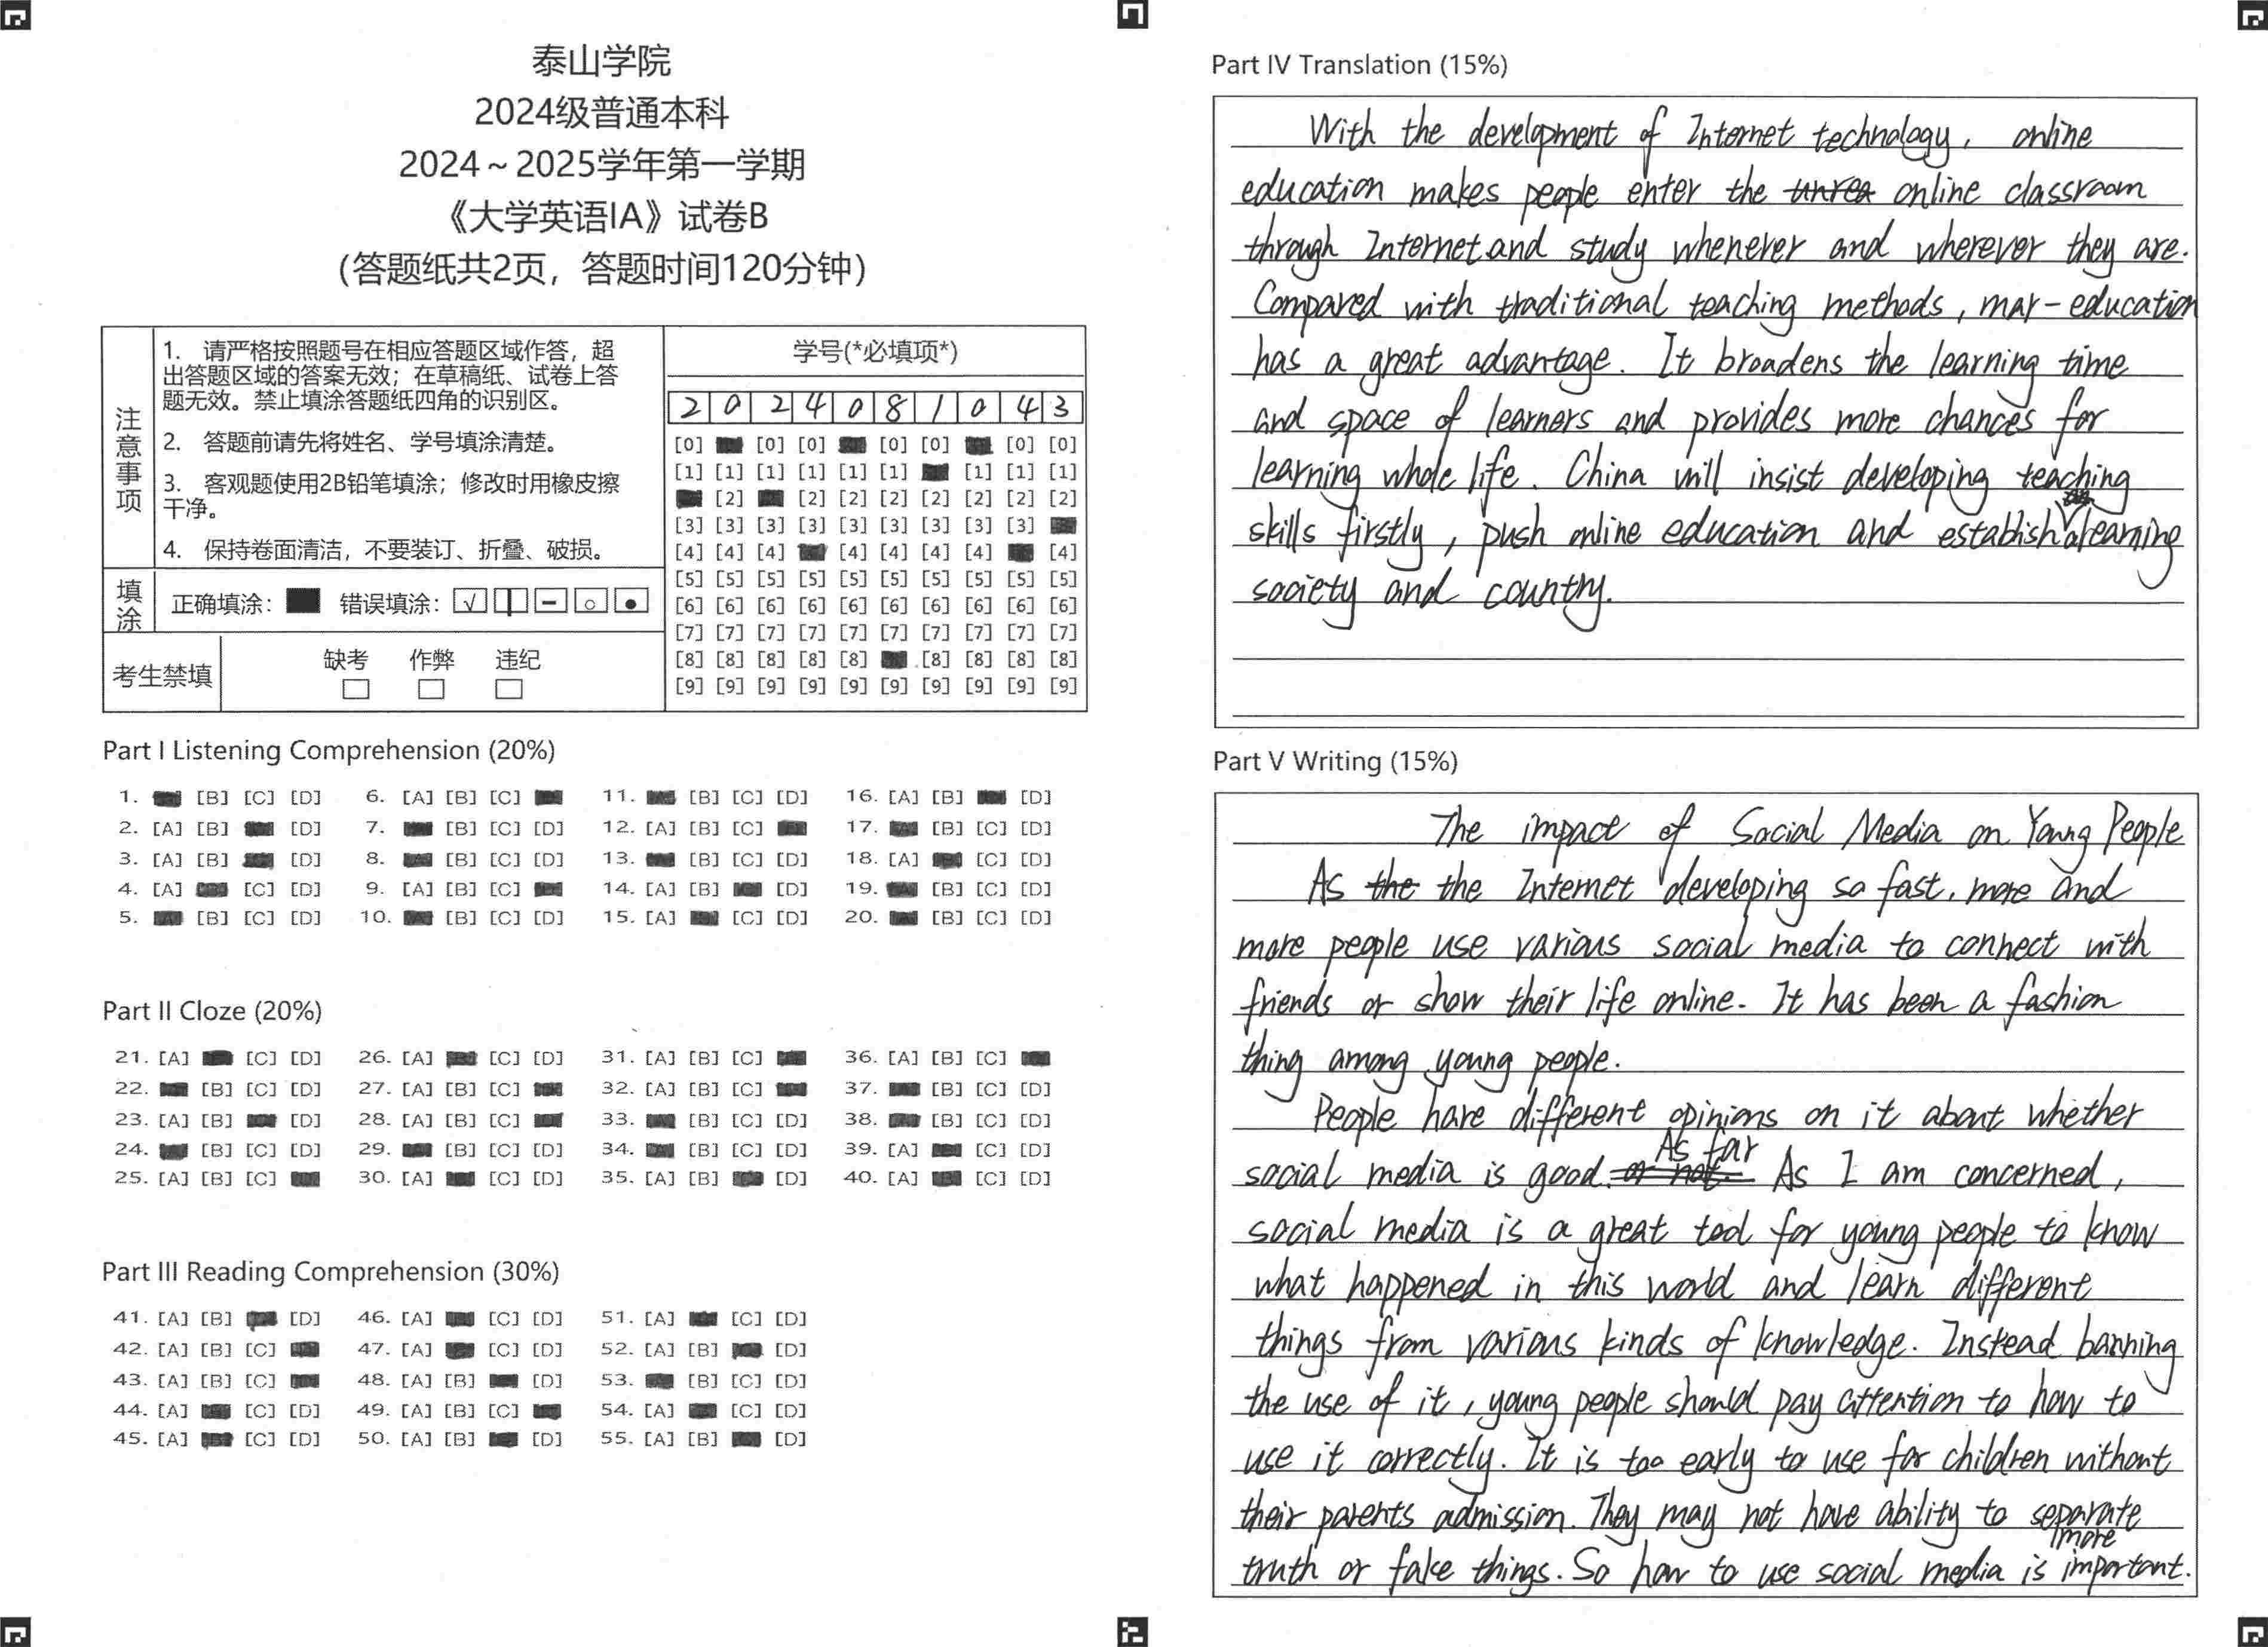 泰山学院
2024级普通本科
2024～2025学年第一学期
《大学英语IA》试卷B
（答题纸共2页，答题时间120分钟）
注意事项
1. 请严格按照题号在相应答题区域作答，超
出答题区域的答案无效；在草稿纸、试卷上答
题无效。禁止填涂答题纸四角的识别区。
2. 答题前请先将姓名、学号填涂清楚。
3. 客观题使用2B铅笔填涂；修改时用橡皮擦
干净。
4. 保持卷面清洁，不要装订、折叠、破损。
填涂 正确填涂： 错误填涂：
考生禁填 缺考 作弊 违纪
学号(*必填项*)
2 0 2 4 0 8 1 0 4 3
[0] [0] [0] [0] [0] [0] [0]
[1] [1] [1] [1] [1] [1] [1] [1] [1]
[2] [2] [2] [2] [2] [2] [2] [2]
[3] [3] [3] [3] [3] [3] [3] [3] [3]
[4] [4] [4] [4] [4] [4] [4] [4]
[5] [5] [5] [5] [5] [5] [5] [5] [5] [5]
[6] [6] [6] [6] [6] [6] [6] [6] [6] [6]
[7] [7] [7] [7] [7] [7] [7] [7] [7] [7]
[8] [8] [8] [8] [8] [8] [8] [8] [8]
[9] [9] [9] [9] [9] [9] [9] [9] [9] [9]
Part I Listening Comprehension (20%)
1. [B] [C] [D] 6. [A] [B] [C] 11. [B] [C] [D] 16. [A] [B] [D]
2. [A] [B] [D] 7. [B] [C] [D] 12. [A] [B] [C] 17. [B] [C] [D]
3. [A] [B] [D] 8. [B] [C] [D] 13. [B] [C] [D] 18. [A] [C] [D]
4. [A] [C] [D] 9. [A] [B] [C] 14. [A] [B] [D] 19. [B] [C] [D]
5. [B] [C] [D] 10. [B] [C] [D] 15. [A] [C] [D] 20. [B] [C] [D]
Part II Cloze (20%)
21. [A] [C] [D] 26. [A] [C] [D] 31. [A] [B] [C] 36. [A] [B] [C]
22. [B] [C] [D] 27. [A] [B] [C] 32. [A] [B] [C] 37. [B] [C] [D]
23. [A] [B] [D] 28. [A] [B] [C] 33. [B] [C] [D] 38. [B] [C] [D]
24. [B] [C] [D] 29. [B] [C] [D] 34. [B] [C] [D] 39. [A] [C] [D]
25. [A] [B] [C] 30. [A] [C] [D] 35. [A] [B] [D] 40. [A] [C] [D]
Part III Reading Comprehension (30%)
41. [A] [B] [D] 46. [A] [C] [D] 51. [A] [C] [D]
42. [A] [B] [C] 47. [A] [C] [D] 52. [A] [B] [D]
43. [A] [B] [C] 48. [A] [B] [D] 53. [B] [C] [D]
44. [A] [C] [D] 49. [A] [B] [C] 54. [A] [C] [D]
45. [A] [C] [D] 50. [A] [B] [D] 55. [A] [B] [D]
Part IV Translation (15%)
With the development of Internet technology, online
education makes people enter the online classroom
through Internet and study whenever and wherever they are.
Compared with traditional teaching methods, mar-education
has a great advantage. It broadens the learning time
and space of learners and provides more chances for
learning whole life. China will insist developing teaching
skills firstly, push online education and establish a learning
society and country.
Part V Writing (15%)
The impact of Social Media on Young People
As the the Internet developing so fast, more and
more people use various social media to connect with
friends or show their life online. It has been a fashion
thing among young people.
People have different opinions on it about whether
social media is good or not. As far As I am concerned,
social media is a great tool for young people to know
what happened in this world and learn different
things from various kinds of knowledge. Instead banning
the use of it, young people should pay attention to how to
use it correctly. It is too early to use for children without
their parents admission. They may not have ability to separate
truth or fake things. So how to use social media is more important.